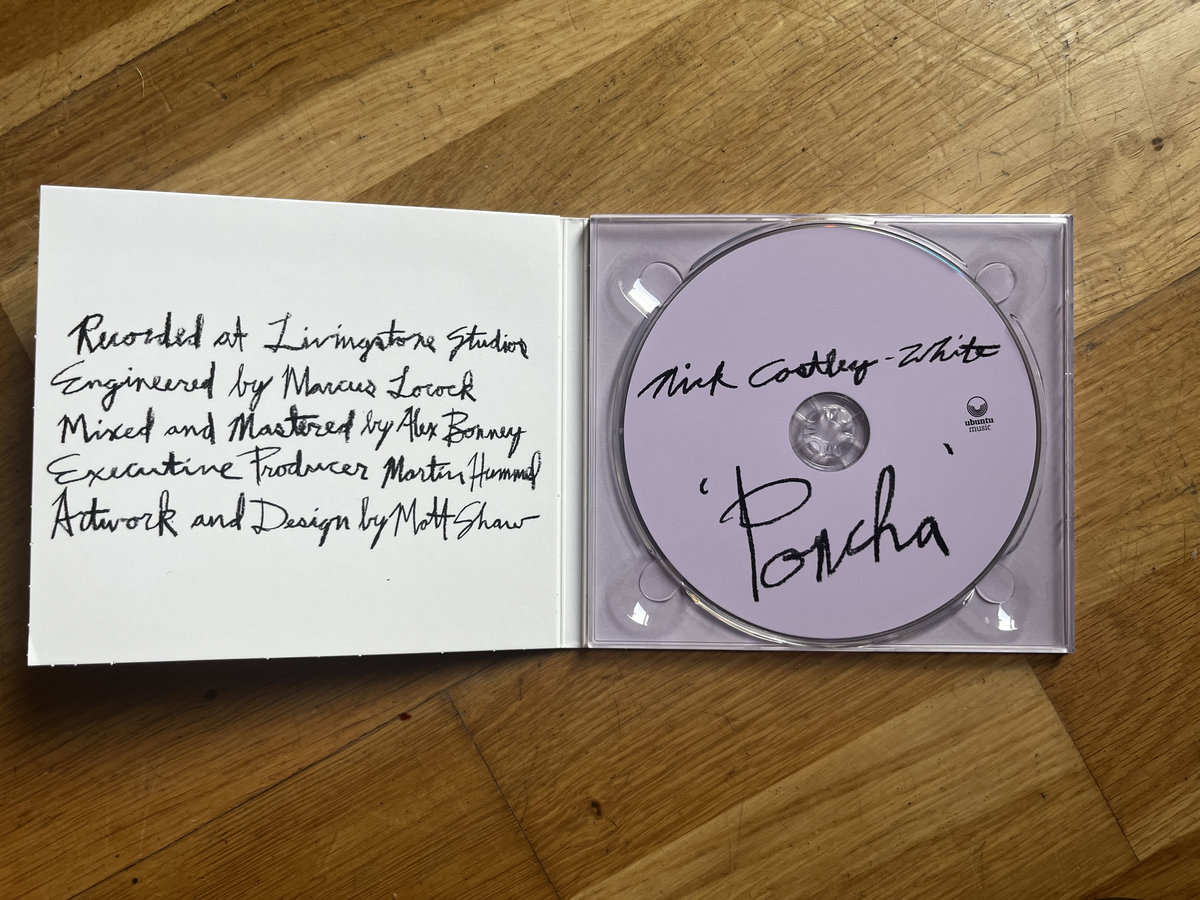 Recorded at Livingstone Studios
Engineered by Marcus Locock
Mixed and Mastered by Alex Bonney
Executive Producer Martin Hummel
Artwork and Design by Matt Shaw
Nick Costley-White
ubuntu
music
'Poncha'